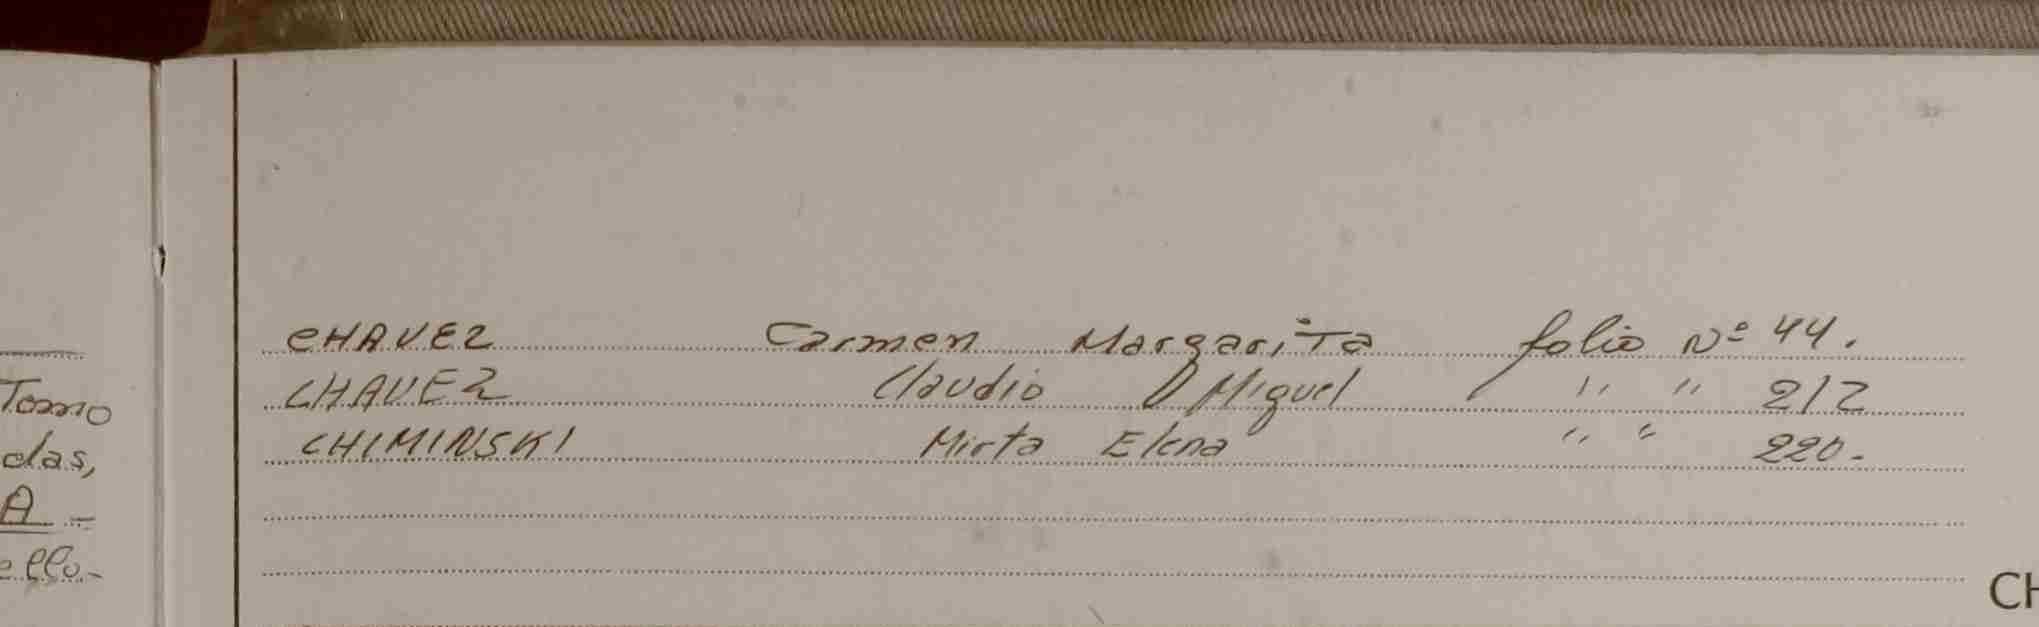 Tomo
das,
A -
ello-
CHAVEZ Carmen Margarita folio Nº 44.
CHAVEZ Claudio Miguel " " 212
CHIMINSKI Mirta Elena " " 220.-
CH